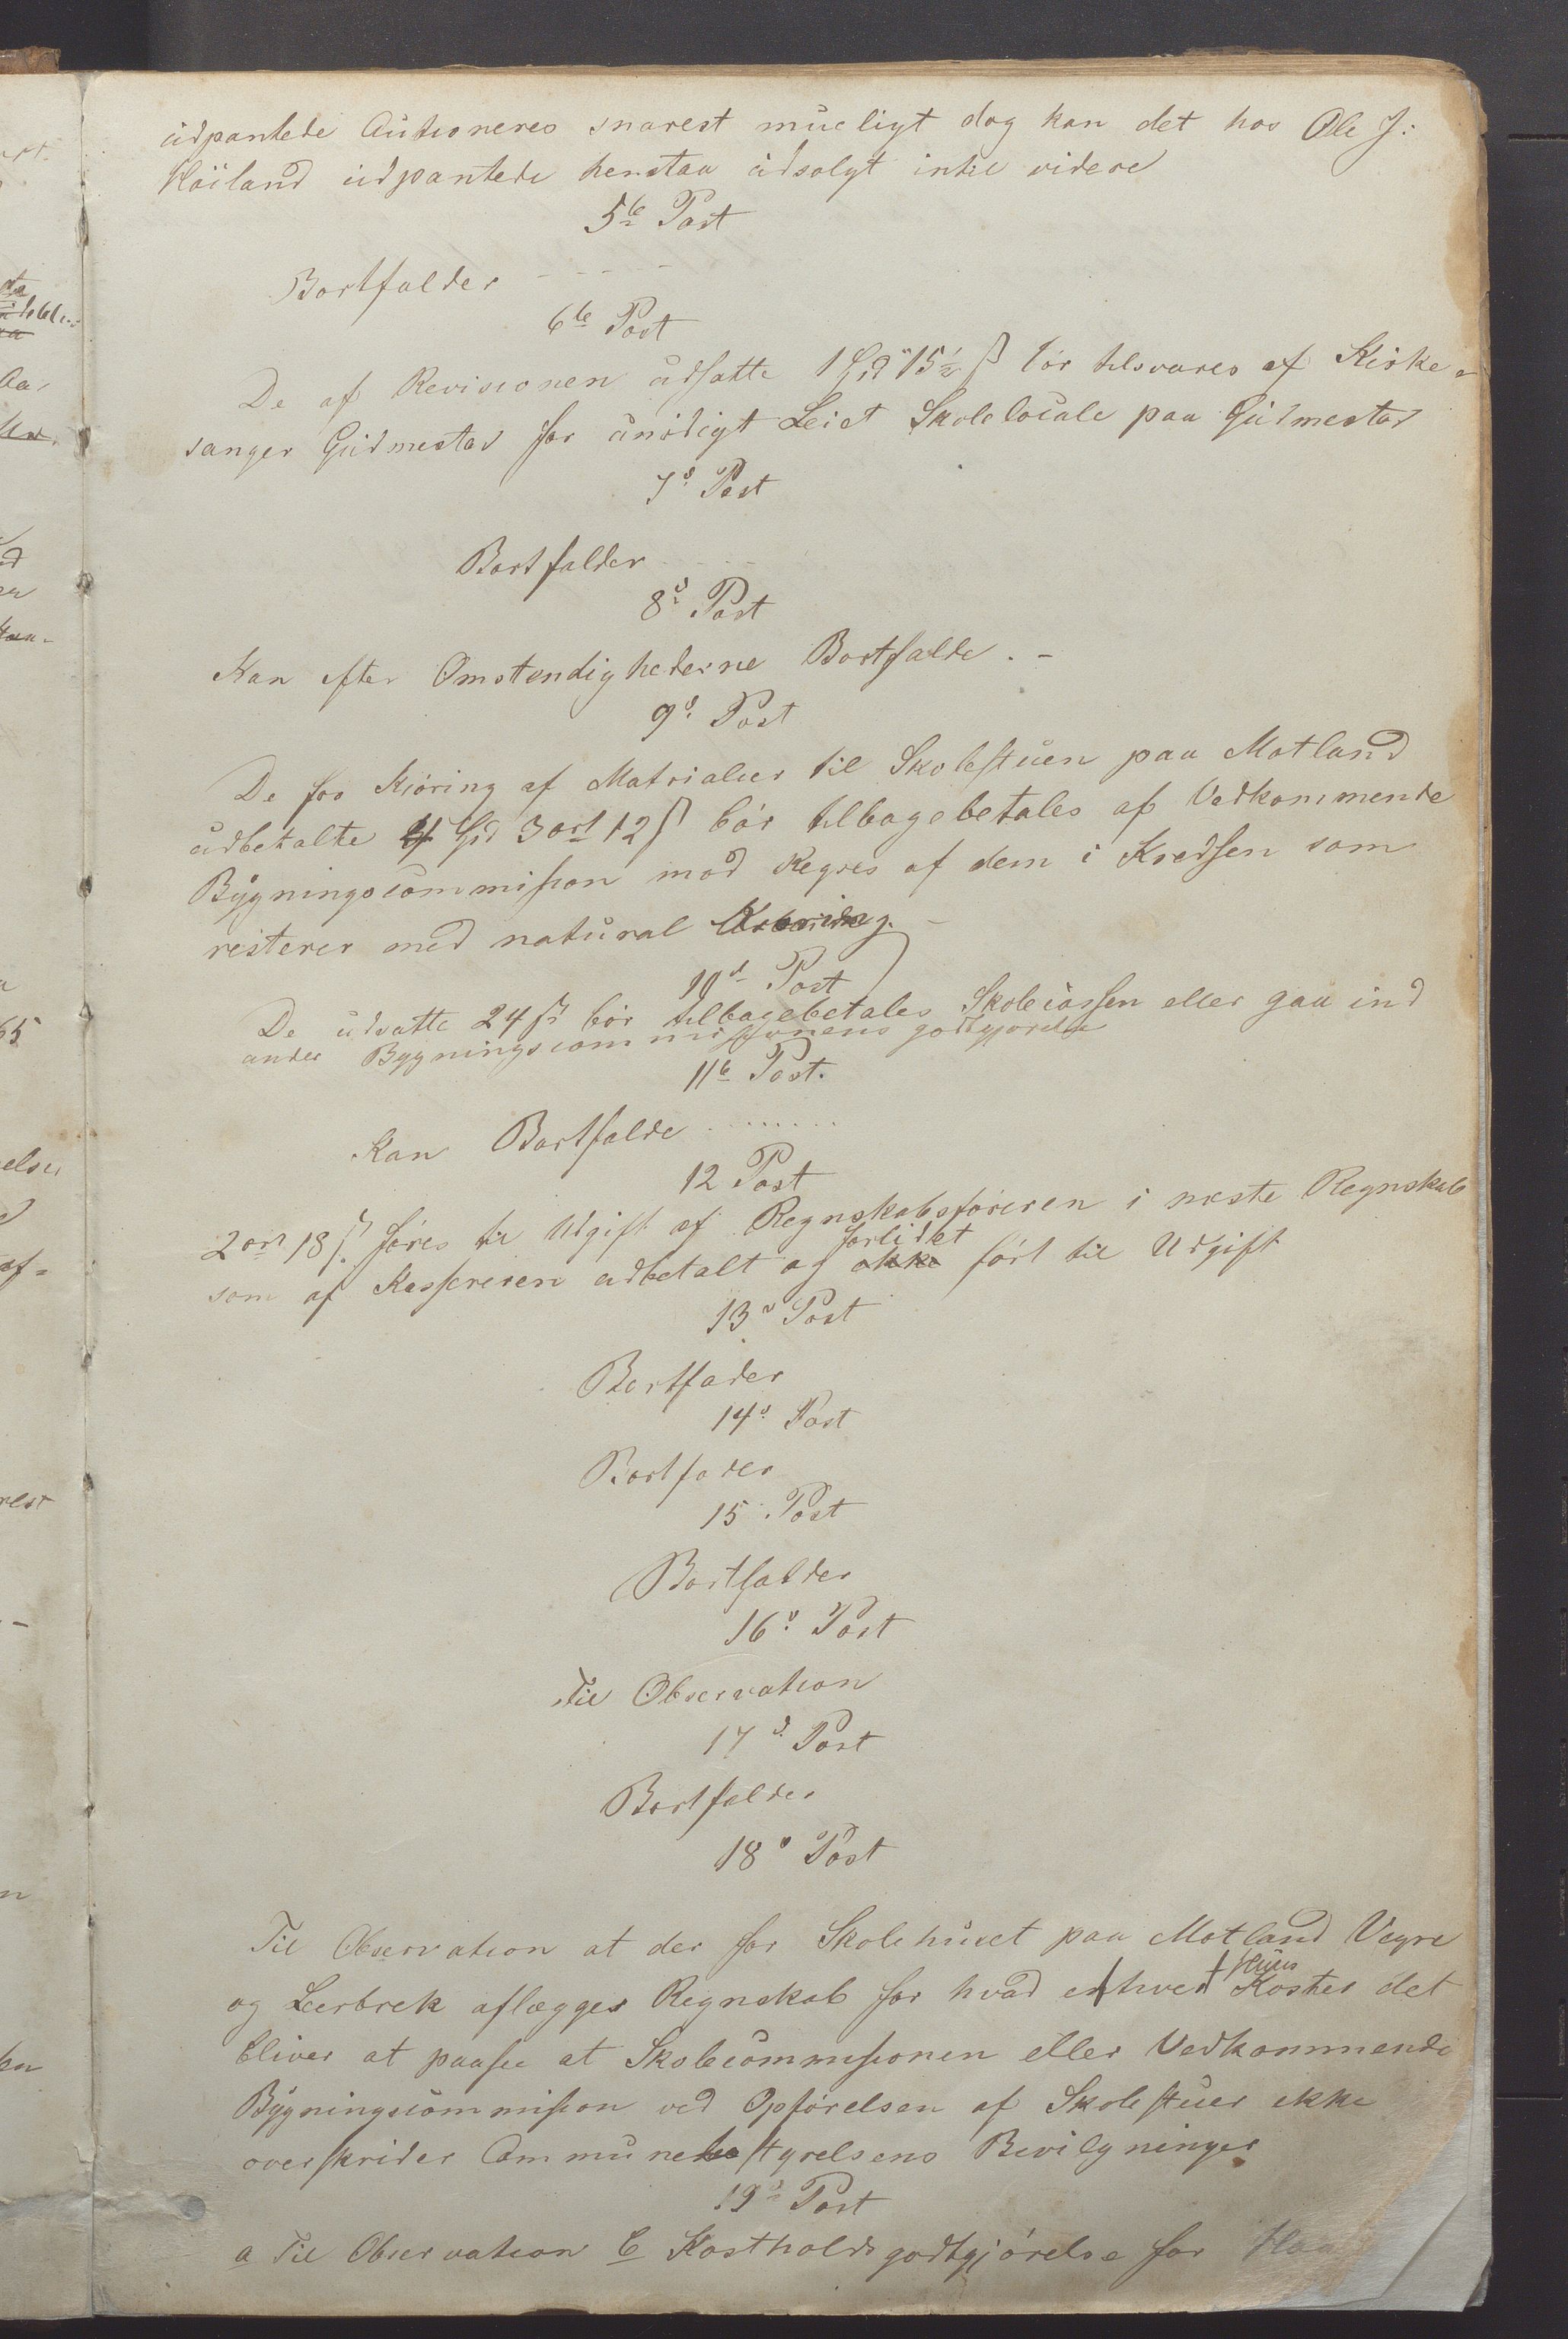 udpantede Auctioneres snarest mueligt dog kan det hos Ole J:
Höiland udpantede henstaa udsolgt intil videre
5te Post
Bortfalder - - - -
6te Post
De af Revisionen udsatte 1 Spd 15½ ß bör tilsvares af Kirke-
sanger Gudmestad for unödigt Leiet Skolelocale paa Gudmestad
7d Post
Bortfalder - - - -
8d Post
Kan efter Omstendighederne Bortfalde . -
9d Post
De for Kjöring af Matrialier til Skolestuen paa Motland
udbetalte 4 Spd 3 ort 12 ß bör tilbagebetales af Vedkommende
Bygningscommission mod Regres af dem i Kredsen som
resterer med natural
10d Post
De udsatte 24 ß bör tilbagebetales Skolecassen eller gaa ind
under Bygningscommissionens godtgjorelse
11te Post.
Kan Bortfalde . . . . . . . .
12 Post
2 ort 18 ß föres til Udgift af Regnskabsföreren i næste Regnskab
forlidet
som af Kassereren udbetalt og ikke fört til Udgift
13d Post
Bortfader
14d Post
Bortfader
15 Post
Bortfalder
16d Post
Til Observation
17d Post
Bortfalder
18d Post
Til Observation at der for Skolehuset paa Motland Vigre
Huus
og Leerbrek aflægges Regnskab for hvad ethvert Koster det
bliver at paasee at Skolecommissionen eller Vedkommende
Bygningscommission ved Opförelsen af Skolestuer ikke
overskrider Communebestyrelsens Bevilgninger
19d Post
a Til Observation b Kostholds godtgjörelse for